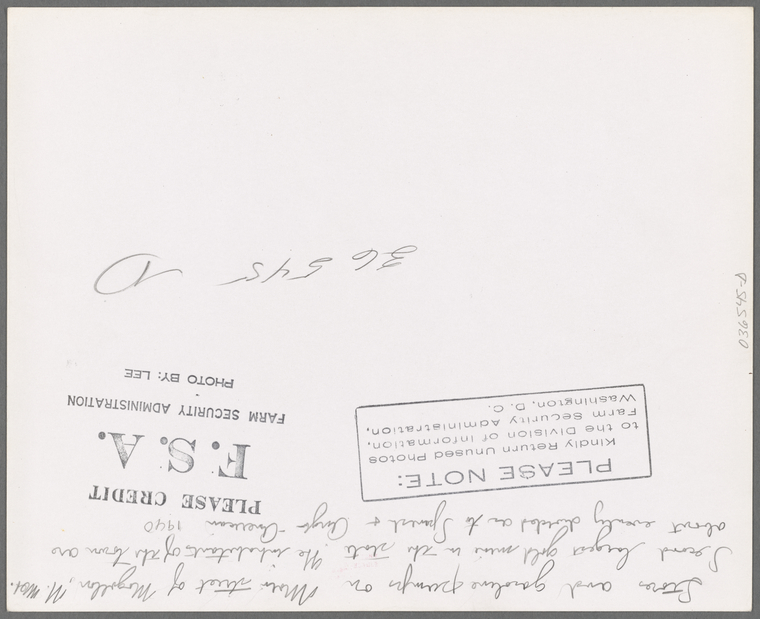 Stores and gasoline pumps on Main street of Mogollon, N. Mex.
Second largest gold mine in the state. The inhabitants of the town are
about evenly divided as to Spanish + Anglo-American 1940
PLEASE CREDIT
F.S.A.
FARM SECURITY ADMINISTRATION
PHOTO BY: LEE
PLEASE NOTE:
Kindly Return Unused Photos
to the Division of Information,
Farm Security Administration,
Washington, D. C.
36545 D
036545-D